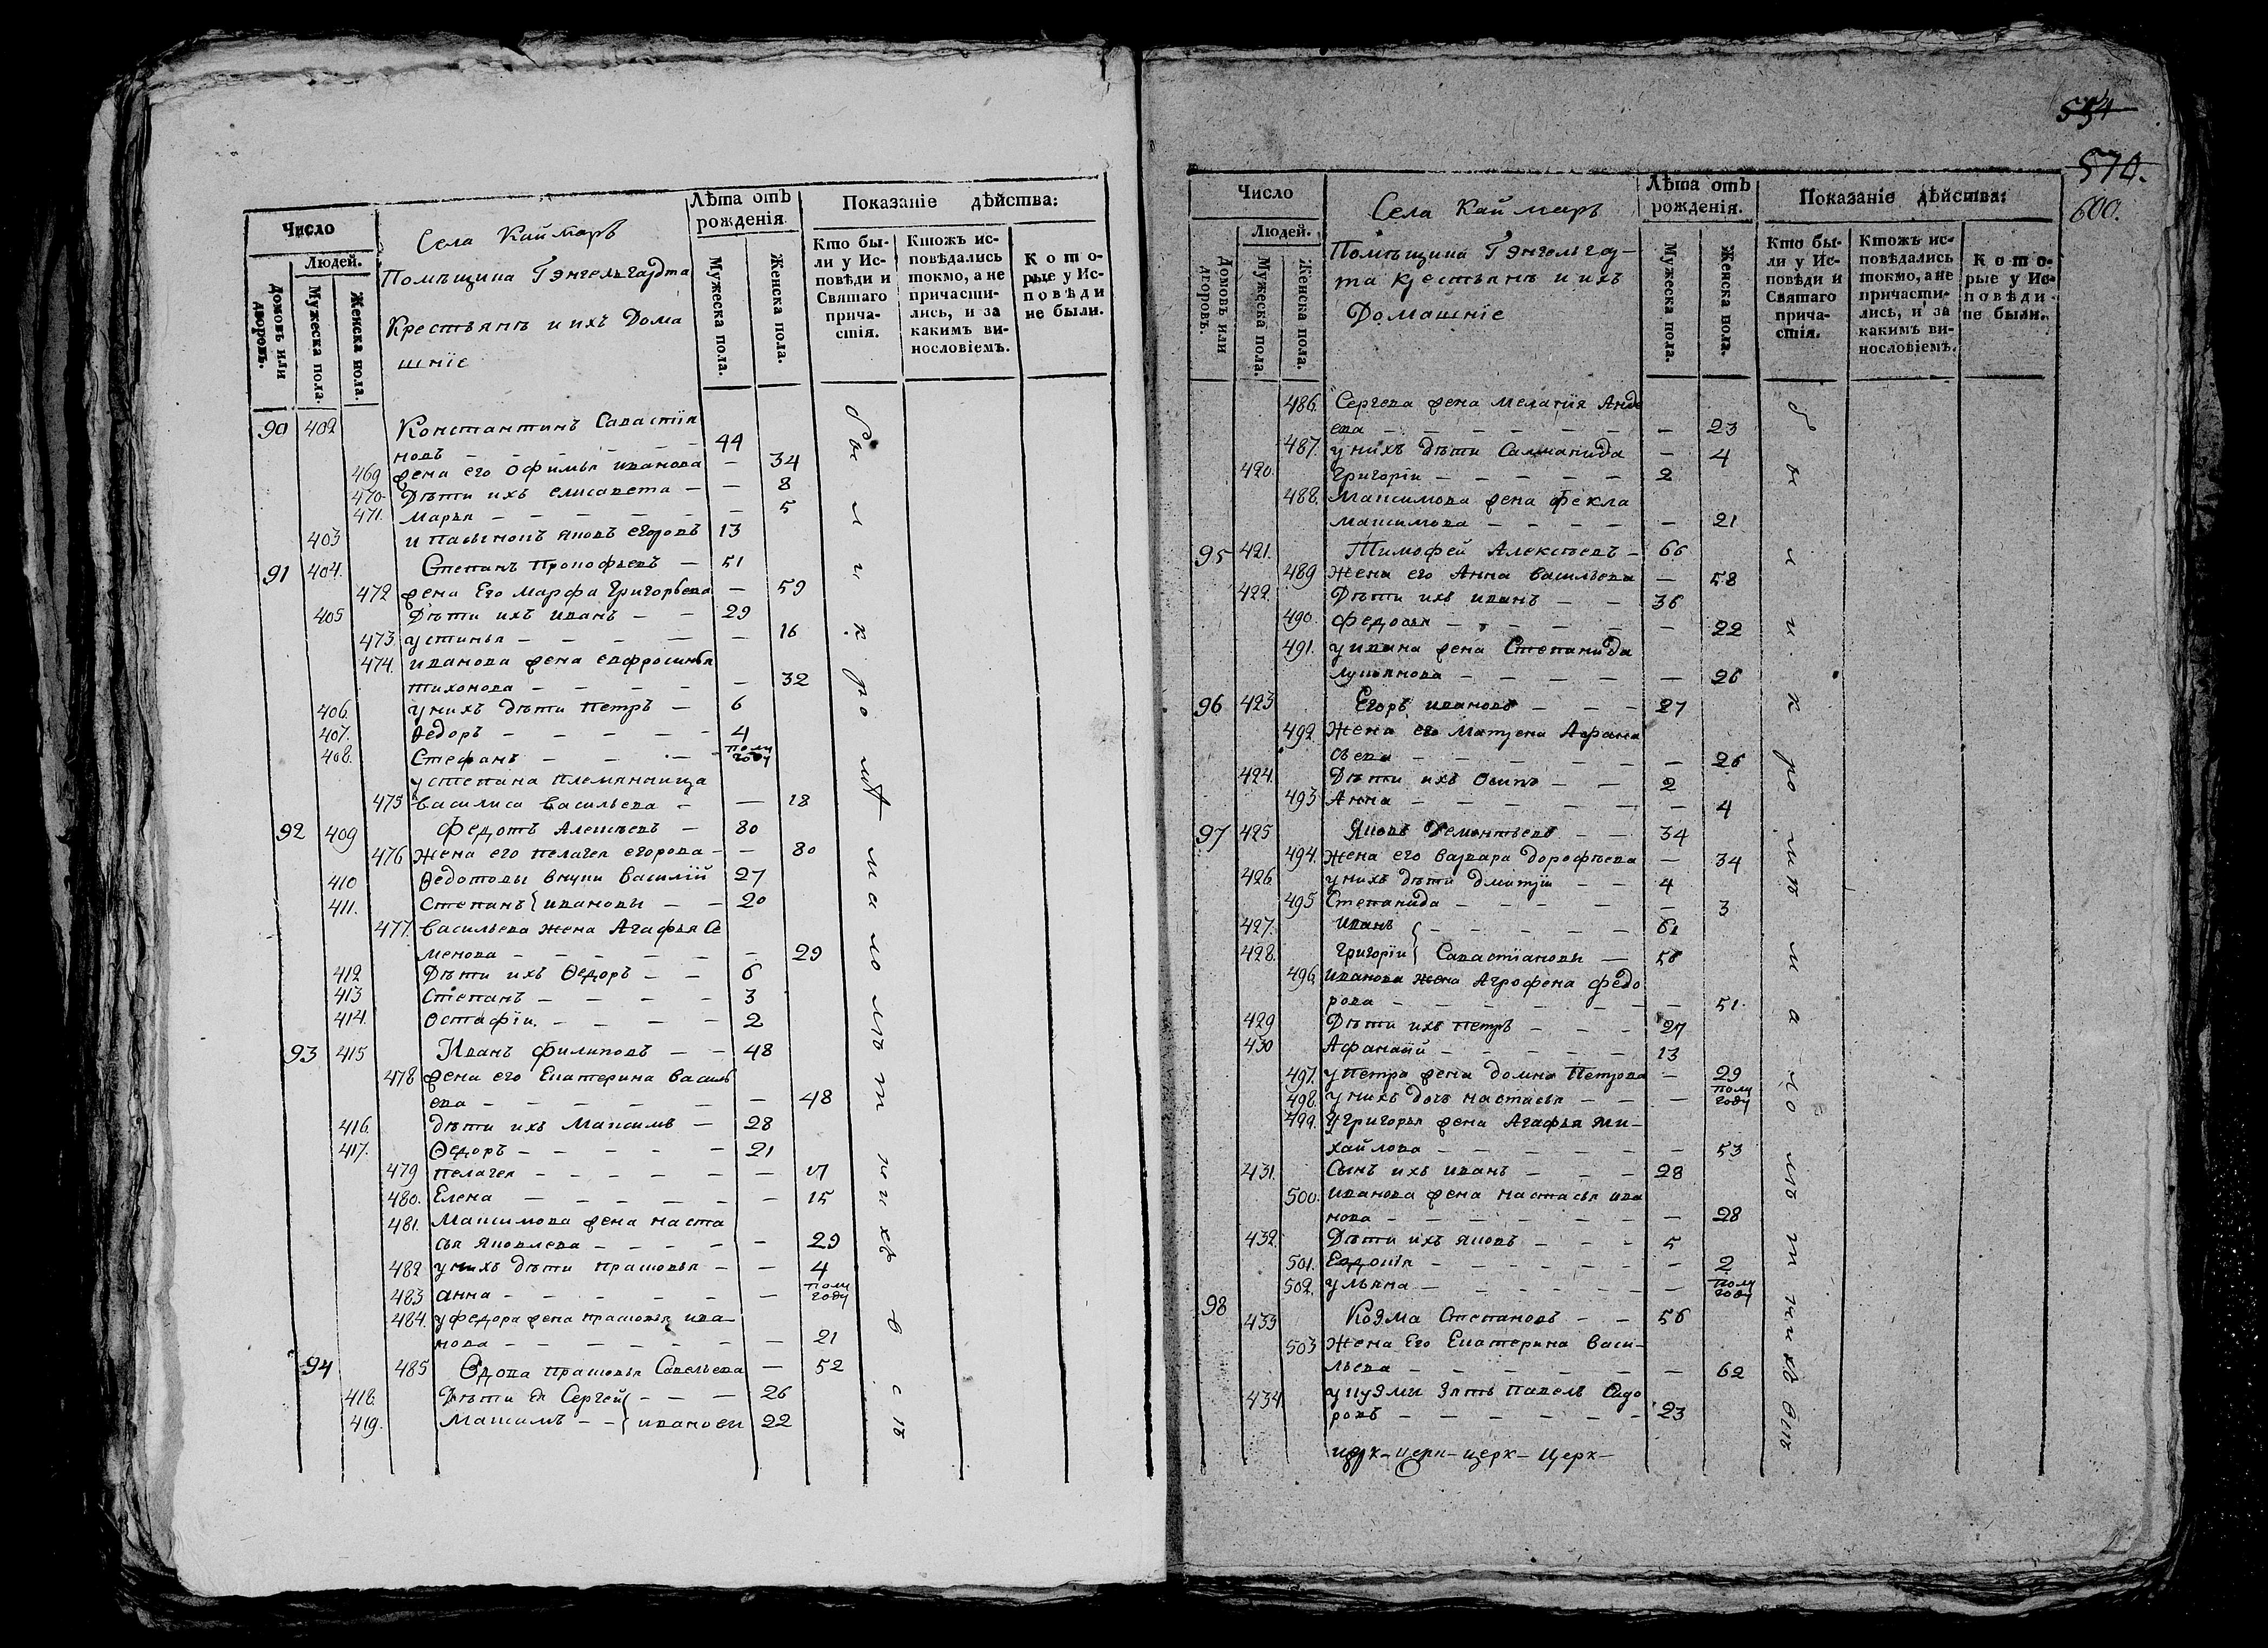 Число
Людей.
Домовъ или дворовъ.
Мужеска пола.
Женска пола.
Села Каймаръ
Помѣщика Гэнгельгардта
Крестьянъ и ихъ Дома
шніе
Лѣта отъ
рожденія.
Мужеска пола.
Женска пола.
Показаніе дѣйства:
Кто бы-
ли у Ис-
повѣди и
Святаго
прича-
стія.
Ктожъ ис-
повѣдались
токмо, а не
причасти-
лись, и за
какимъ ви-
нословіемъ.
Кото-
рые у Ис-
повѣди
не были.
90 402 Константинъ Савастія
новъ 44
469 жена его Офимья иванова 34
470 Дѣти ихъ елисавета 8
471. Марья 5
403 и пасынокъ яковъ егоровъ 13
91 404. Степанъ Прокофьевъ 51
472 жена Его Марфа Григорьева 59
405 Дѣти ихъ иванъ 29
473. устинья 16
474. иванова жена евфросинья
тихонова 32
406. у нихъ дѣти петръ 6
407. Ѳедоръ 4
408. Стефанъ полу
году
у степана племянница
475 василиса васильева 18
92 409 Федотъ Алексѣевъ 80
476 Жена его пелагея егорова 80
410 Ѳедотовы внуки василій 27
411. Степанъ ивановы 20
477. васильева жена Агафья Се
менова 29
412 Дѣти ихъ Ѳедоръ 6
413 Степанъ 3
414. Остафіи. 2
93 415 Иванъ филиповъ 48
478 жена его Екатерина василь
ева 48
416 дѣти ихъ Максимъ 28
417. Ѳедоръ 21
479 пелагея 17
480. Елена 15
481. Максимова жена наста
сья яковлева 29
482 у нихъ дѣти прасковья 4
483 анна полу
году
484. у федора жена прасковья ива-
нова 21
94 485 Вдова прасковья Савельева 52
418. Дѣти ея Сергей 26
419. Максимъ ивановы 22
были и к при с т м а к о и т н и х ъ в с ѣ
534
570.
600.
Число
Людей.
Домовъ или дворовъ.
Мужеска пола.
Женска пола.
Села Каймаръ
Помѣщика Гэнгельгар-
та крестьянъ и ихъ
Домашніе
Лѣта отъ
рожденія.
Мужеска пола.
Женска пола.
Показаніе дѣйства:
Кто бы-
ли у Ис-
повѣди и
Святаго
прича-
стія.
Ктожъ ис-
повѣдались
токмо, а не
причасти-
лись, и за
какимъ ви-
нословіемъ.
Кото-
рые у Ис-
повѣди
не были.
486. Сергева жена мелания Анде
ева 23
487. у нихъ дѣти Саломанида 4
420. Григоріи 2
488. Максимова жена Фекла
максимова 21
95 421. Тимофей Алексѣевъ 66
489 Жена его Анна васильева 58
422. Дѣти ихъ иванъ 36
490. федосья 22
491. у ивана жена Степанида
лукьянова 26
96 423 Егоръ ивановъ 27
492. Жена его Матрена Афана
сьева 26
424. Дѣти ихъ Осипъ 2
493 Анна 4
97 425 Яковъ Дементьевъ 34
494. Жена его варвара дорофѣева 34
426. у нихъ дѣти дмитріи 4
495 Степанида 3
427. иванъ 61
428. Григоріи Савастіановы 56
496. иванова жена Агрофена федо
рова 51.
429 Дѣти ихъ петръ 27
430 Афанасіи 13
497. у петра жена домна Петрова 29
498. у нихъ дочь настасья полу
году
499. У григорья жена Агафья ми-
хайлова 53
431. Сынъ ихъ иванъ 28
500. иванова жена настасья ива
нова 28
432. Дѣти ихъ яковъ 5
501. Евдокія 2
502. ульяна полу
году
98 433 Козма Степановъ 56
503 Жена Его Екатерина васи-
льева 62
434 у кузми Зять павелъ Сидо
ровъ 23
церк-церк-церк-Церк-